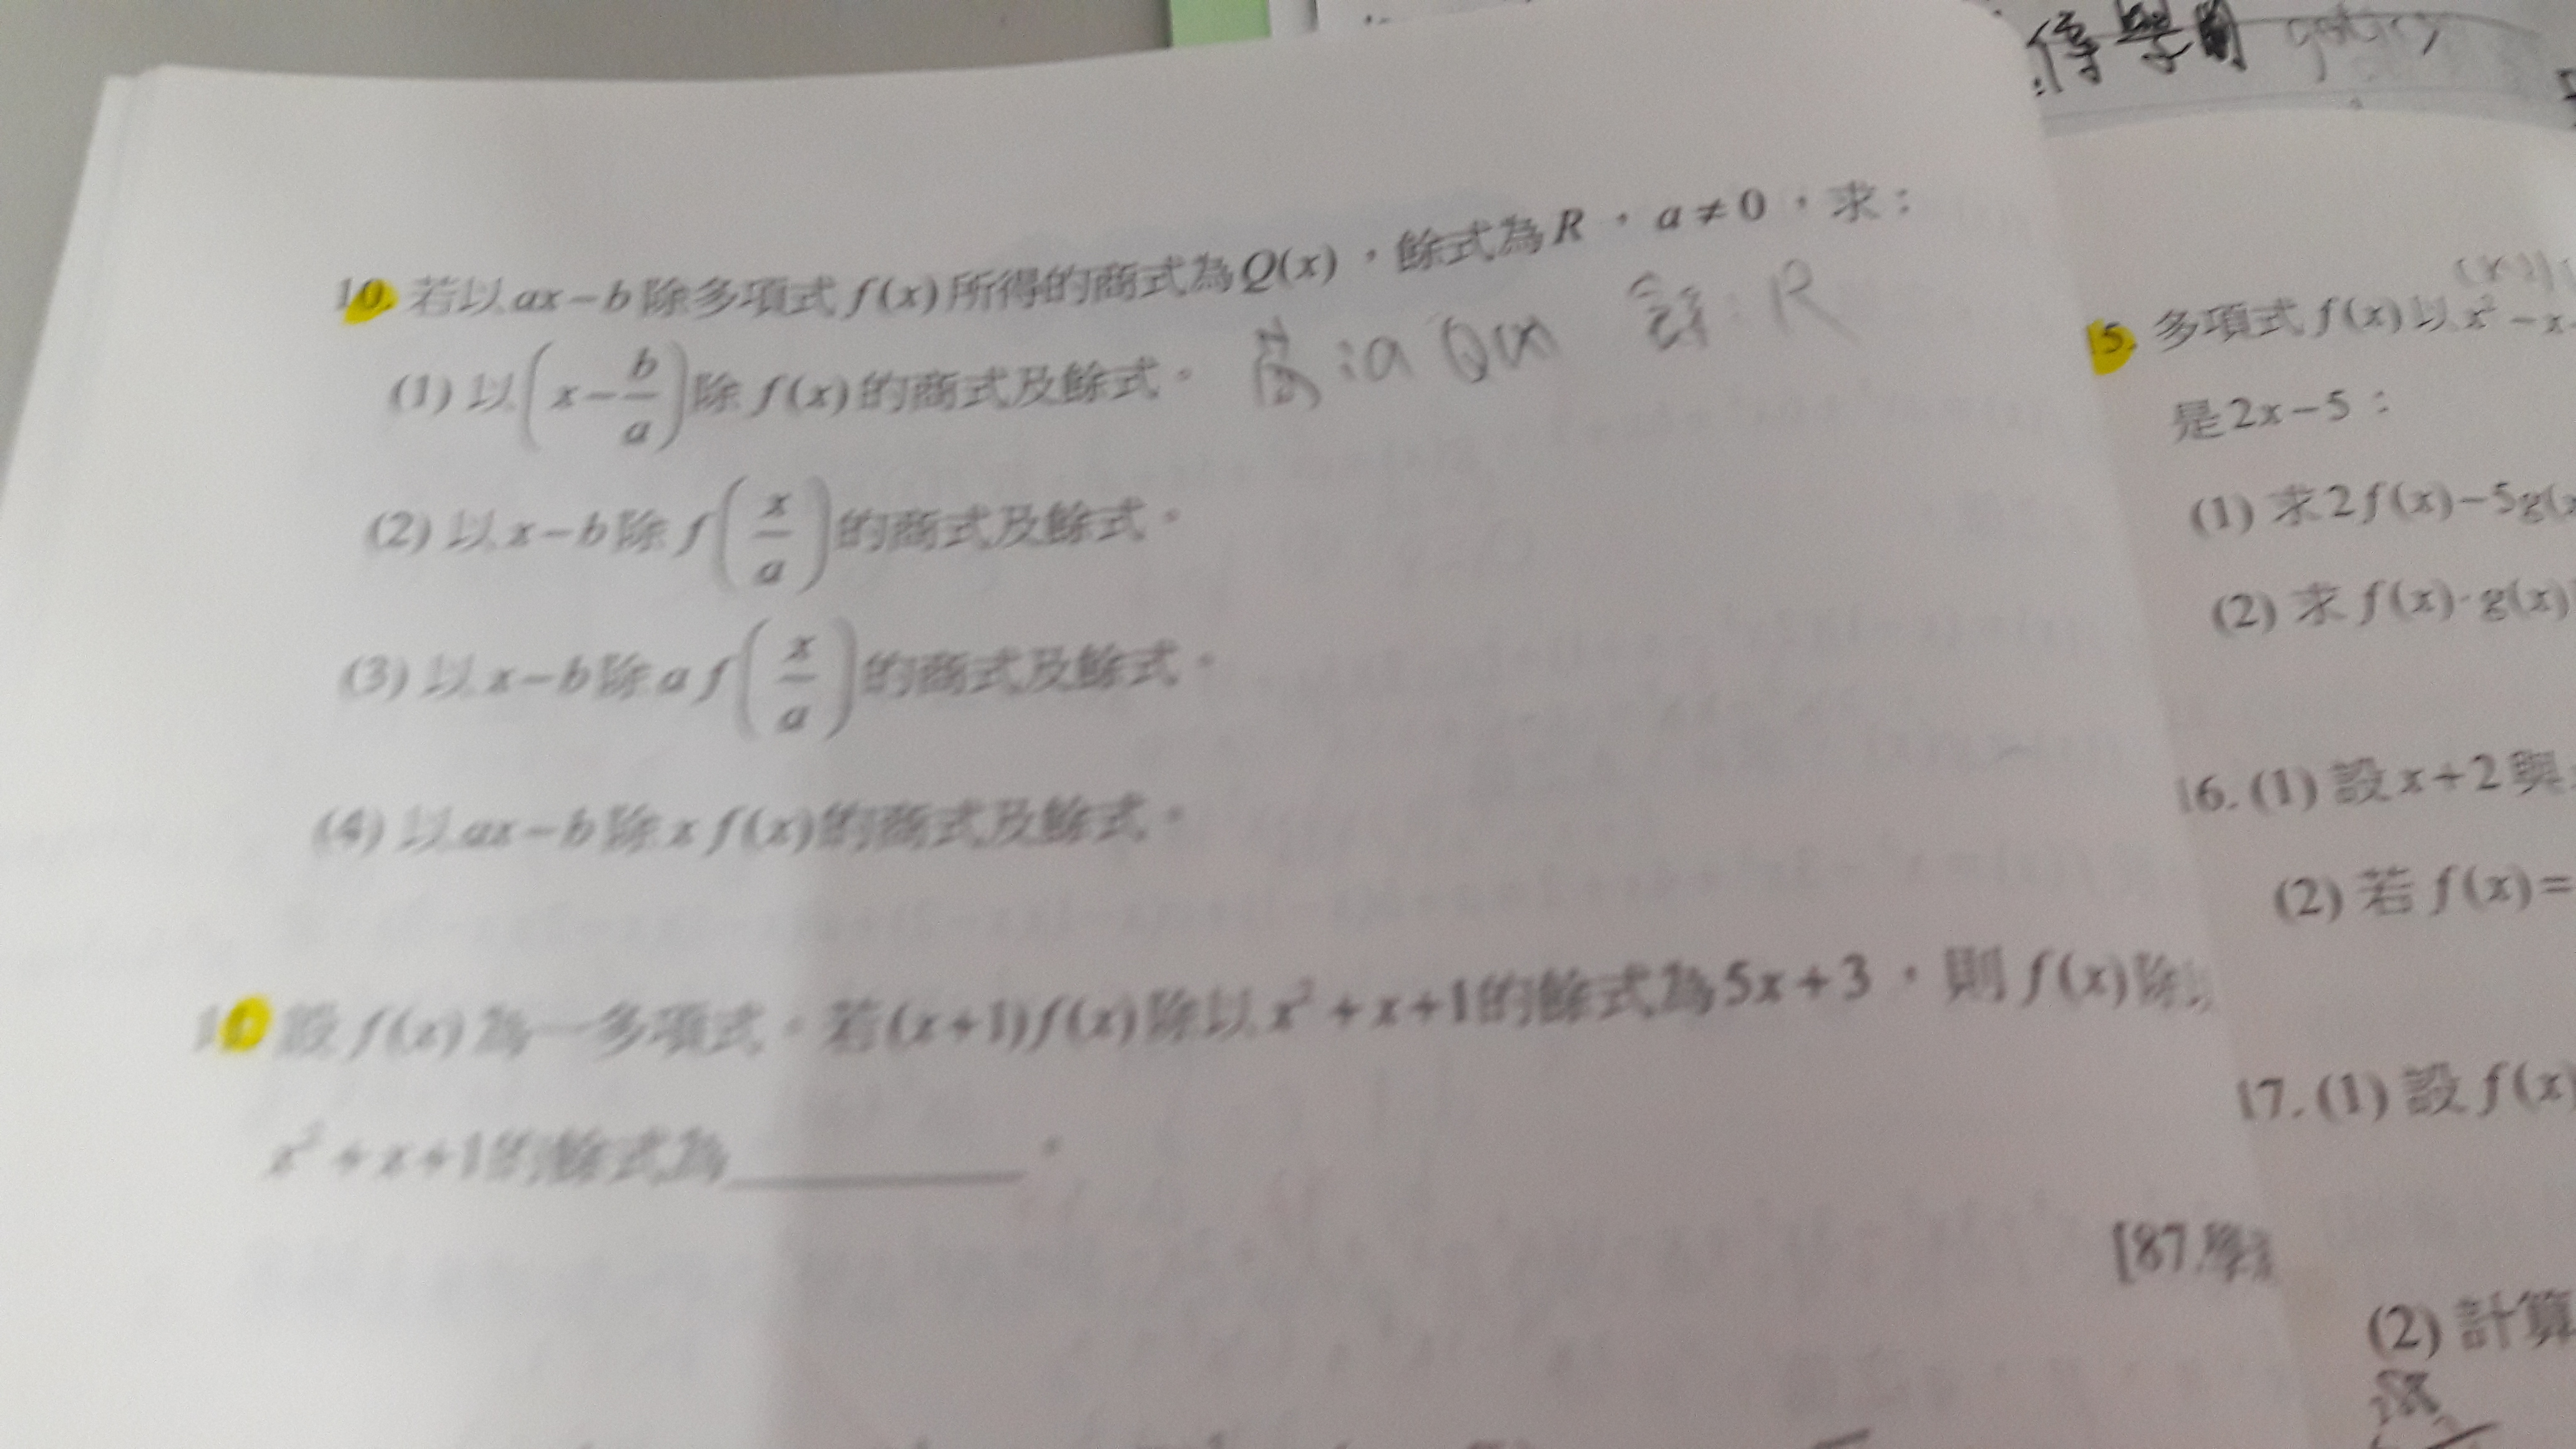 10. 若以 ax－b 除多項式 f(x) 所得的商式為 Q(x)，餘式為 R，a≠0，求：
(1) 以(x－b/a)除 f(x) 的商式及餘式。 商：a Q(x) 餘：R
(2) 以 x－b 除 f(x/a)的商式及餘式。
(3) 以 x－b 除 a f(x/a)的商式及餘式。
(4) 以 ax－b 除 x f(x)的商式及餘式。
設 f(x) 為一多項式。若(x+1)f(x)除以 x²+x+1的餘式為5x+3，則 f(x)除以
x²+x+1的餘式為________。
[87.學
15. 多項式 f(x) 以 x²－x
是2x－5：
(1) 求2f(x)－5g(
(2) 求 f(x)·g(x)
16. (1) 設 x+2 與
(2) 若 f(x)=
17. (1) 設 f(x)
(2) 計算